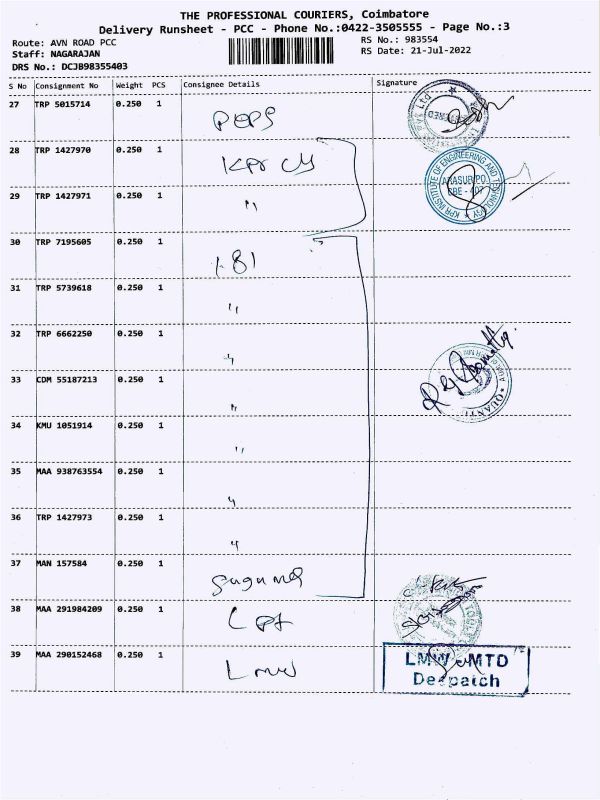 THE PROFESSIONAL COURIERS, Coimbatore
Delivery Runsheet - PCC - Phone No.:0422-3505555 - Page No.:3
Route: AVN ROAD PCC RS No.: 983554
Staff: NAGARAJAN RS Date: 21-Jul-2022
DRS No.: DCJB98355403
S No Consignment No Weight PCS Consignee Details Signature
27 TRP 5015714 0.250 1
PEPS
28 TRP 1427970 0.250 1
Kpr
KPR INSTITUTE OF ENGINEERING AND TECHNOLOGY
ARASUR PO.
CBE - 407
29 TRP 1427971 0.250 1 "
30 TRP 7195605 0.250 1
31 TRP 5739618 0.250 1 "
32 TRP 6662250 0.250 1 "
33 CDM 55187213 0.250 1 "
34 KMU 1051914 0.250 1 "
35 MAA 938763554 0.250 1 "
36 TRP 1427973 0.250 1 "
37 MAN 157584 0.250 1
Suguna
38 MAA 291984209 0.250 1
39 MAA 290152468 0.250 1
Lmw
LMW MTD
Despatch